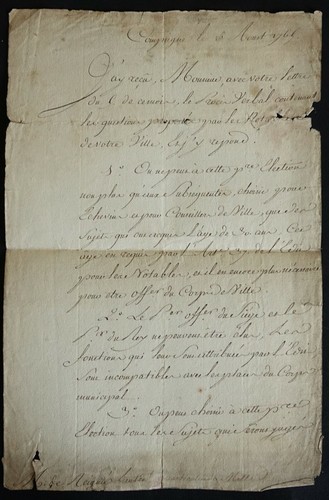 Compiegne le 8 Aoust 1765
J'ay recu, Monsieur avec votre lettre
du 6 de ce mois, le Procès Verbal contenant
les questions proposées par les Not
de votre Ville, et j'y repond.
1.° On ne peut à cette p.re Election
non plus qu'aux subsequentes, choisir pour
Echevins et pour Conseillers de Ville, que des
sujets qui ont acquis l'age de 30 ans. Cet
age est requis par l'Art. de l'Edit
pour les Notables, et il est encore plus nécessaire
pour être offer du Corps de Ville.
2.° Le P.er offer du Siege et le
P.r du Roy ne peuvent être élus, Les
fonctions qui leur sont attribuées par l'Edit
sont incompatibles avec les places du Corps
municipal.
3.° On peut choisir à cette p.re
Election tous les Sujets qui seront jugés